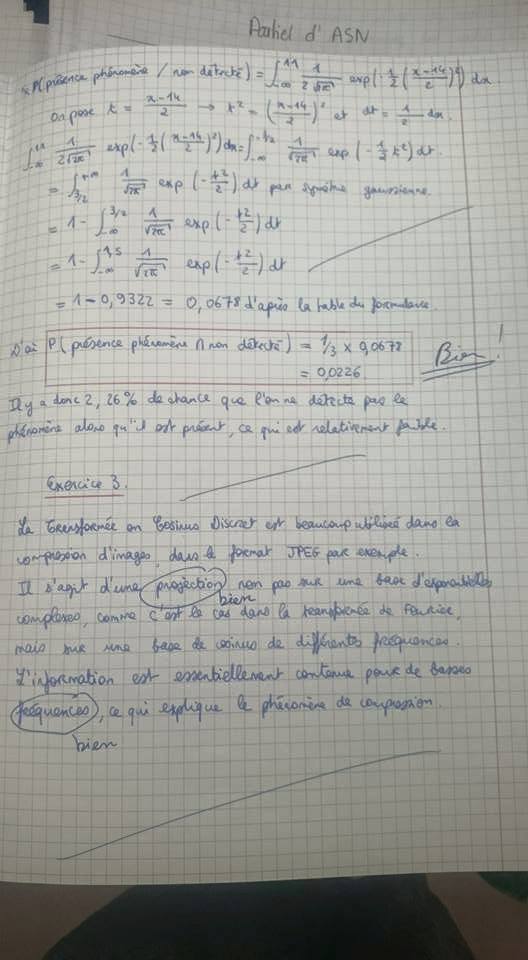 Partiel d'ASN
* P(présence phénomène / non détecté) = ∫_{-∞}^{11} 1/(2√2π) exp(-1/2 ((x-14)/2)²) dx
On pose t = (x-14)/2 → t² = ((x-14)/2)² et dt = 1/2 dx.
∫_{-∞}^{11} 1/(2√2π) exp(-1/2 ((x-14)/2)²) dx = ∫_{-∞}^{-3/2} 1/√2π exp(-1/2 t²) dt.
= ∫_{3/2}^{+∞} 1/√2π exp(-t²/2) dt par symétrie gaussienne.
= 1 - ∫_{-∞}^{3/2} 1/√2π exp(-t²/2) dt
= 1 - ∫_{-∞}^{1,5} 1/√2π exp(-t²/2) dt
= 1 - 0,9322 = 0,0678 d'après la table du formulaire.
D'où P(présence phénomène ∩ non détecté) = 1/3 × 0,0678
= 0,0226
Bien!
Il y a donc 2,26% de chance que l'on ne détecte pas le
phénomène alors qu'il est présent, ce qui est relativement faible.
Exercice 3.
La Transformée en Cosinus Discret est beaucoup utilisée dans la
compression d'images, dans le format JPEG par exemple.
Il s'agit d'une projection non pas sur une base d'exponentielles
bien
complexes, comme c'est le cas dans la transformée de Fourier,
mais sur une base de cosinus de différentes fréquences.
L'information est essentiellement contenue pour de basses
fréquences, ce qui explique le phénomène de compression.
bien